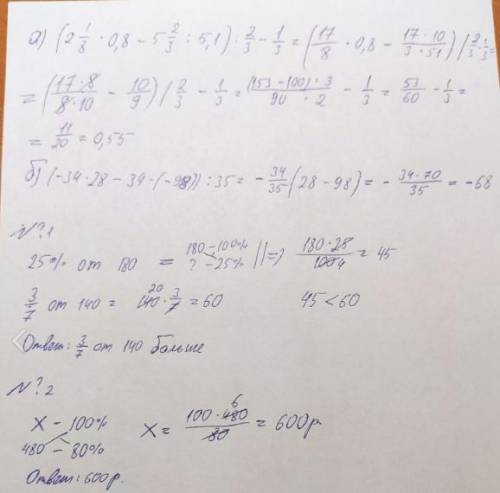 а) (2 1/8 · 0,8 − 5 2/3 : 5,1) : 2/3 − 1/3 = (17/8 · 0,8 − 17·10/3·51) / 2/3 − 1/3 =
= (17·8/8·10 − 10/9) / 2/3 − 1/3 = (153−100)·3/90·2 − 1/3 = 53/60 − 1/3 =
= 11/20 = 0,55
б) (−34·28 − 34·(−98)) : 35 = − 34/35 (28 − 98) = − 34·70/35 = −68
№1
25% от 180 = 180 − 100% ? − 25% || => 180·25/100 4 = 45
3/7 от 140 = 20 140 · 3/7 = 60 45 < 60
Ответ: 3/7 от 140 больше
№2
X − 100%
480 − 80% X = 100·480 6/80 = 600р
Ответ: 600р.